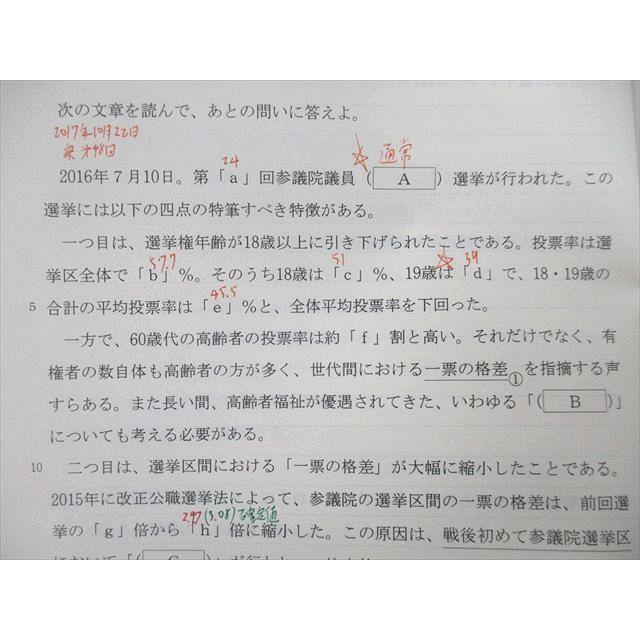 次の文章を読んで、あとの問いに答えよ。
2017年10月22日
衆 才48回
24
通常
2016年7月10日。第「a」回参議院議員( A )選挙が行われた。この
選挙には以下の四点の特筆すべき特徴がある。
一つ目は、選挙権年齢が18歳以上に引き下げられたことである。投票率は選
57.7 51 39
挙区全体で「b」%。そのうち18歳は「c」%、19歳は「d」で、18・19歳の
45.5
5 合計の平均投票率は「e」%と、全体平均投票率を下回った。
一方で、60歳代の高齢者の投票率は約「f」割と高い。それだけでなく、有
権者の数自体も高齢者の方が多く、世代間における一票の格差①を指摘する声
すらある。また長い間、高齢者福祉が優遇されてきた、いわゆる「( B )」
についても考える必要がある。
10 二つ目は、選挙区間における「一票の格差」が大幅に縮小したことである。
2015年に改正公職選挙法によって、参議院の選挙区間の一票の格差は、前回選
2.97 (3.08) 確定値
挙の「g」倍から「h」倍に縮小した。この原因は、戦後初めて参議院選挙区